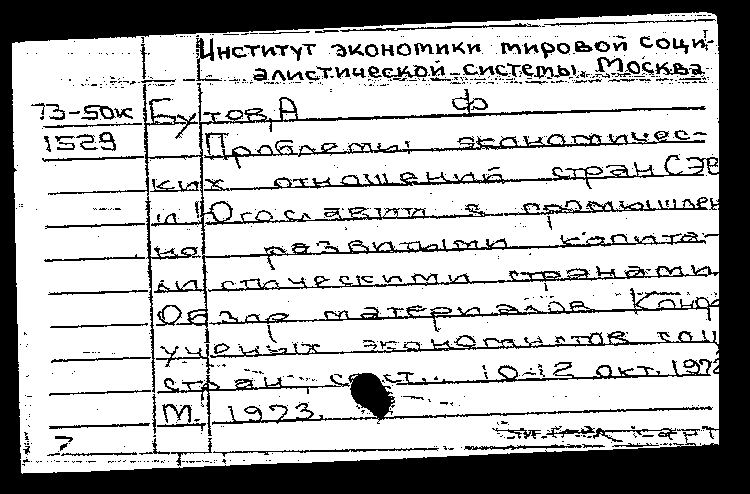 Институт экономики мировой соци-
алистической системы. Москва
73-50к Бутов, А ф
1529 Проблемы экономичес-
ких отношений стран СЭВ
и Югославии с промышлен
но развитыми капита-
листическими странами.
Обзор материалов Конф.
ученых экономистов соц
стран, сост. 10-12 окт. 1972
М., 1973.
7 карт